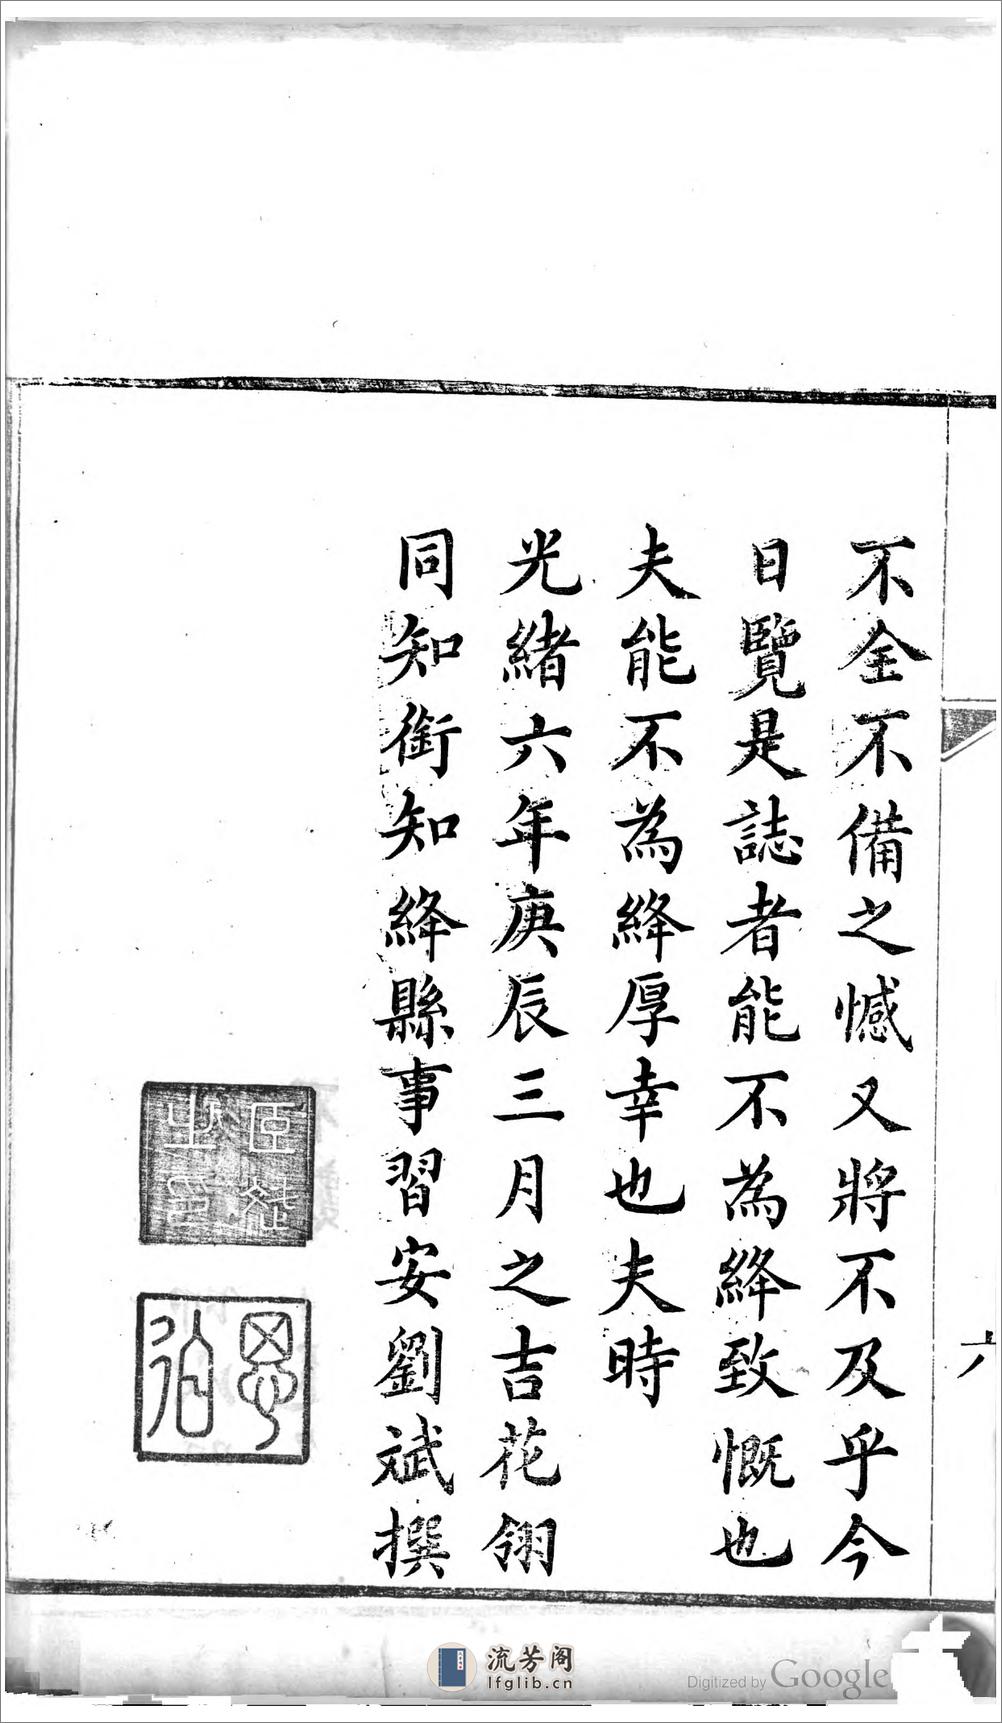 不全不備之憾又將不及乎今
日覽是誌者能不為絳致慨也
夫能不為絳厚幸也夫時
光緒六年庚辰三月之吉花翎
同知銜知絳縣事習安劉斌撰
六
流芳阁
lfglib.cn
Digitized by Google